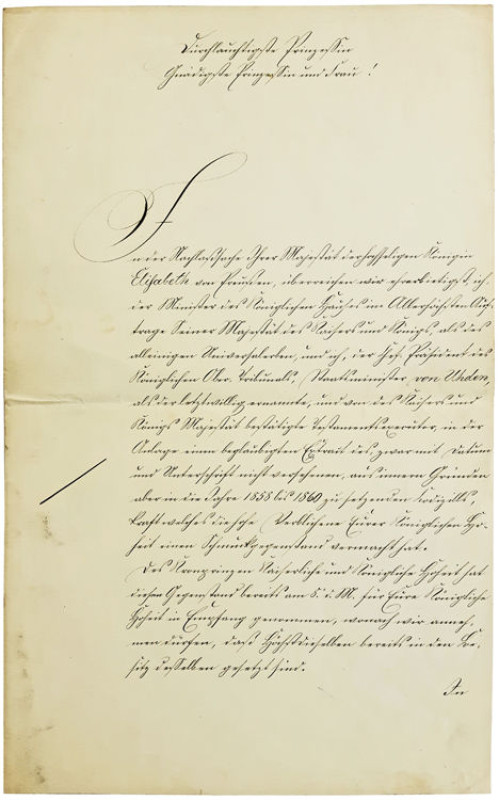 Durchlauchtigste Prinzessin
Gnädigste Prinzessin und Frau!
In der Nachlaßsache Ihrer Majestät der hochseligen Königin
Elisabeth von Preußen, überreichen wir ehrerbietigst, ich,
der Minister des Königlichen Hauses im Allerhöchsten Auf-
trage Seiner Majestät des Kaisers und Königs, als des
alleinigen Universalerben, und ich, der Chef-Präsident des
Königlichen Ober-Tribunals, Staatsminister von Uhden,
als der letztwillig ernannte, und von des Kaisers und
Königs Majestät bestätigte Testamentsexecutor, in der
Anlage einen beglaubigten Extrait des, zwar mit Datum
und Unterschrift nicht versehenen, aus innern Gründen
aber in die Jahre 1858 bis 1860 zu setzenden Kodizills,
kraft welches die hohe Verblichene Eurer Königlichen Ho-
heit einen Schmuckgegenstand vermacht hat.
Des Kronprinzen Kaiserliche und Königliche Hoheit hat
diesen Gegenstand bereits am 5. d. M. für Eure Königliche
Hoheit in Empfang genommen, wonach wir anneh-
men dürfen, daß Höchstdieselben bereits in den Be-
sitz desselben gesetzt sind.
In